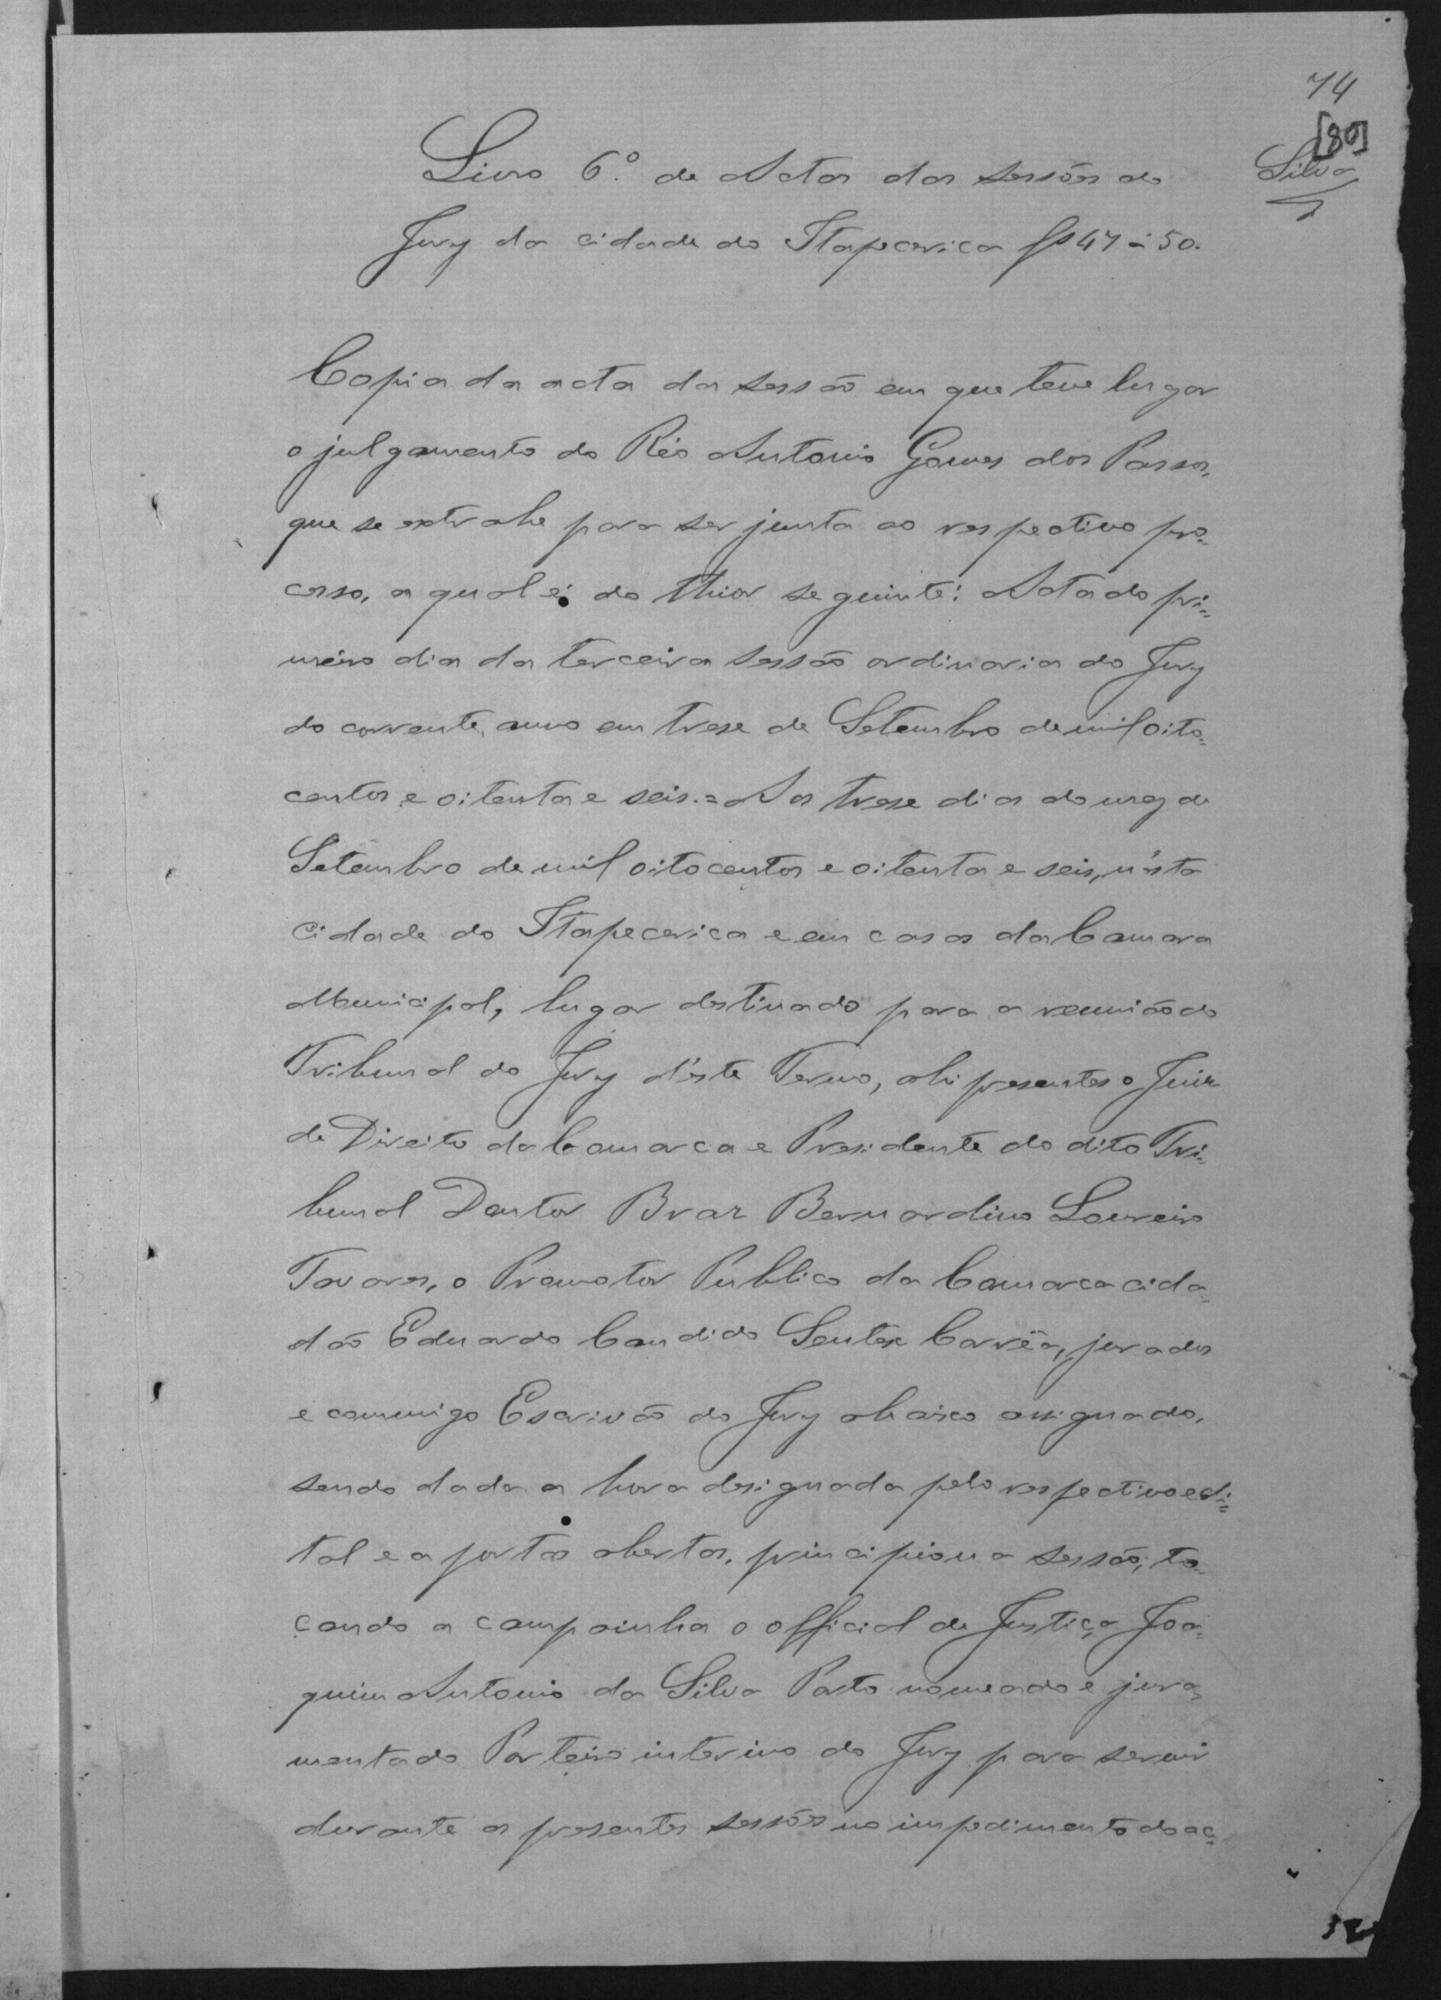 74
[80]
Silva
Livro 6.º de Actas das sessões do
Jury da cidade do Itapecerica fls 47 á 50.
Copia da acta da sessão em que teve lugar
o julgamento do Réo Antonio Gomes dos Passos,
que se extrahe para ser junta ao respectivo pro-
cesso, a qual é do theor seguinte: Acta do pri-
meiro dia da terceira sessão ordinaria do Jury
do corrente anno em trese de Setembro de mil oito-
centos e oitenta e seis.= Aos trese dias do mez de
Setembro de mil oitocentos e oitenta e seis, n'esta
cidade do Itapecerica e em casas da Camara
Municipal, lugar destinado para a reunião do
Tribunal do Jury d'este Termo, ahi presentes o Juiz
de Direito da Comarca e Presidente do dito Tri-
bunal Doutor Braz Bernardino Loureiro
Tavares, o Promotor Publico da Comarca cida-
dão Eduardo Candido Corrêa, jurados
e commigo Escrivão do Jury abaixo assignado,
sendo dada a hora designada pelo respectivo edi-
tal e a portas abertas, principiou a sessão, to-
cando a campainha o official de Justiça Joa-
quim Antonio da Silva Porto nomeado e jura-
mentado Porteiro interino do Jury para servir
durante as presentes sessões no impedimento do ac-